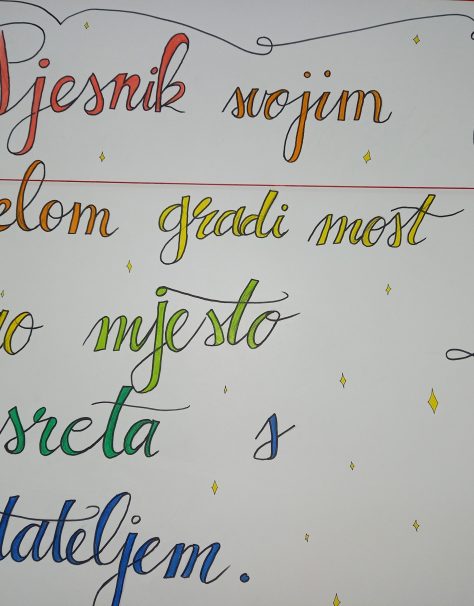 Pjesnik svojim
elom gradi most
ao mjesto
sreta s
tateljem.